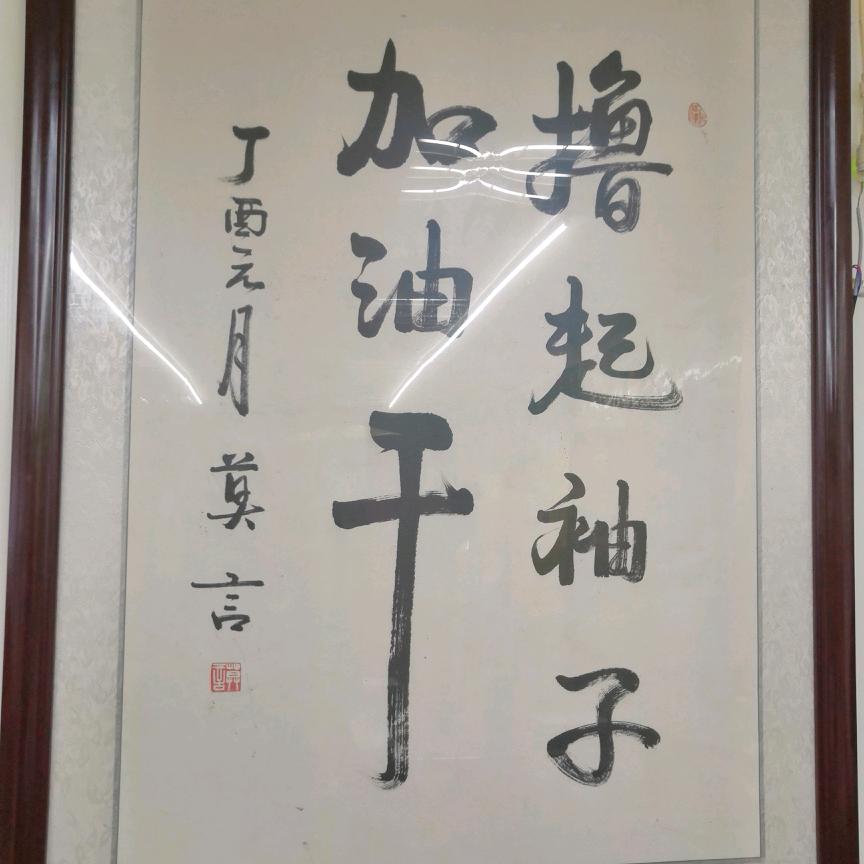 撸起袖子
加油干
丁酉元月 莫言
莫言